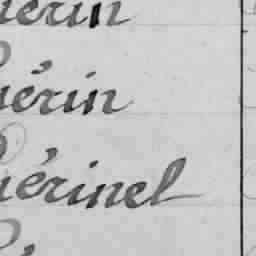 uérin
uérin
uérinel